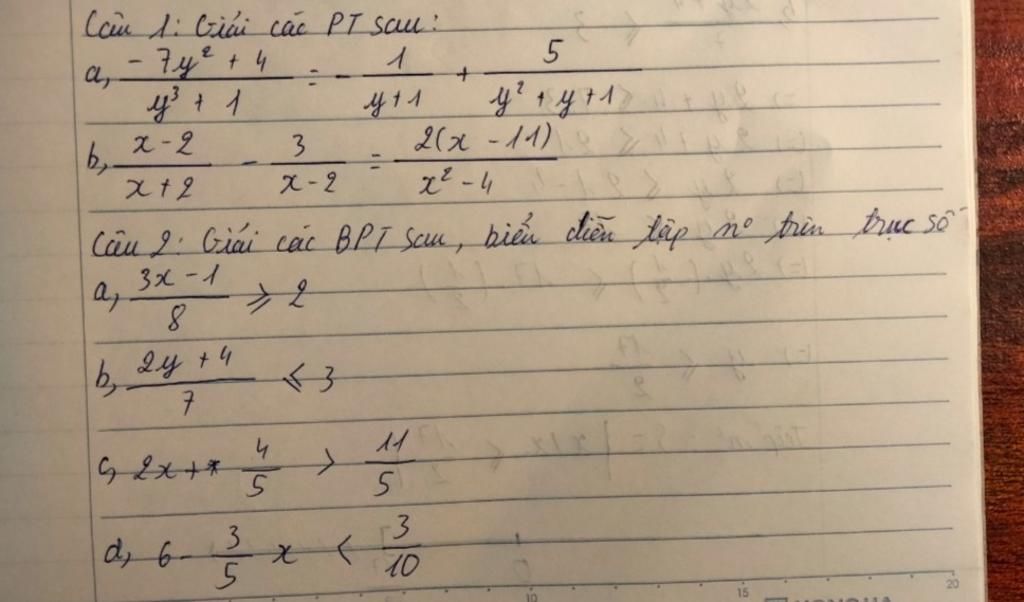 Câu 1: Giải các PT sau:
a, (-7y² + 4)/(y³ + 1) = - 1/(y+1) + 5/(y² + y + 1)
b, (x-2)/(x+2) - 3/(x-2) = 2(x - 11)/(x² - 4)
Câu 2: Giải các BPT sau, biểu diễn tập n° trên trục số
a, (3x - 1)/8 ⩾ 2
b, (2y + 4)/7 ⩽ 3
c, 2x + 4/5 > 11/5
d, 6 - 3/5 x < 3/10
10 15 20